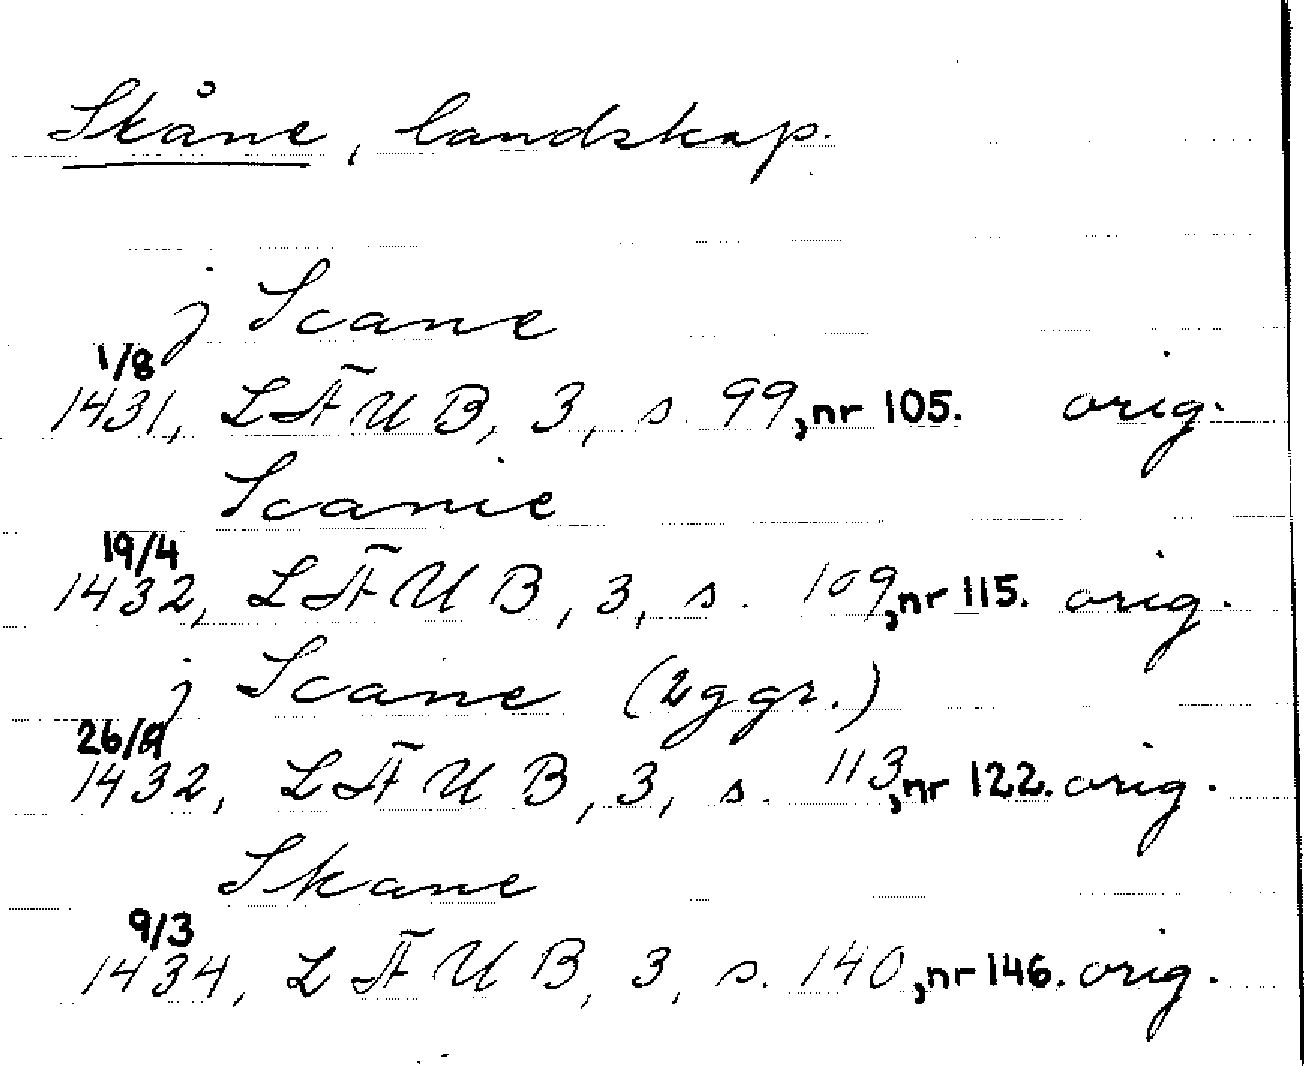 Skåne, landskap.
j Scane
1/8
1431, LÄUB, 3, s. 99, nr 105. orig.
Scanie
19/4
1432, LÄUB, 3, s. 109, nr 115. orig.
j Scane (2 ggr.)
1432, LÄUB, 3, s. 113, nr 122. orig.
Skane
9/3
1434, LÄUB, 3, s. 140, nr 146. orig.